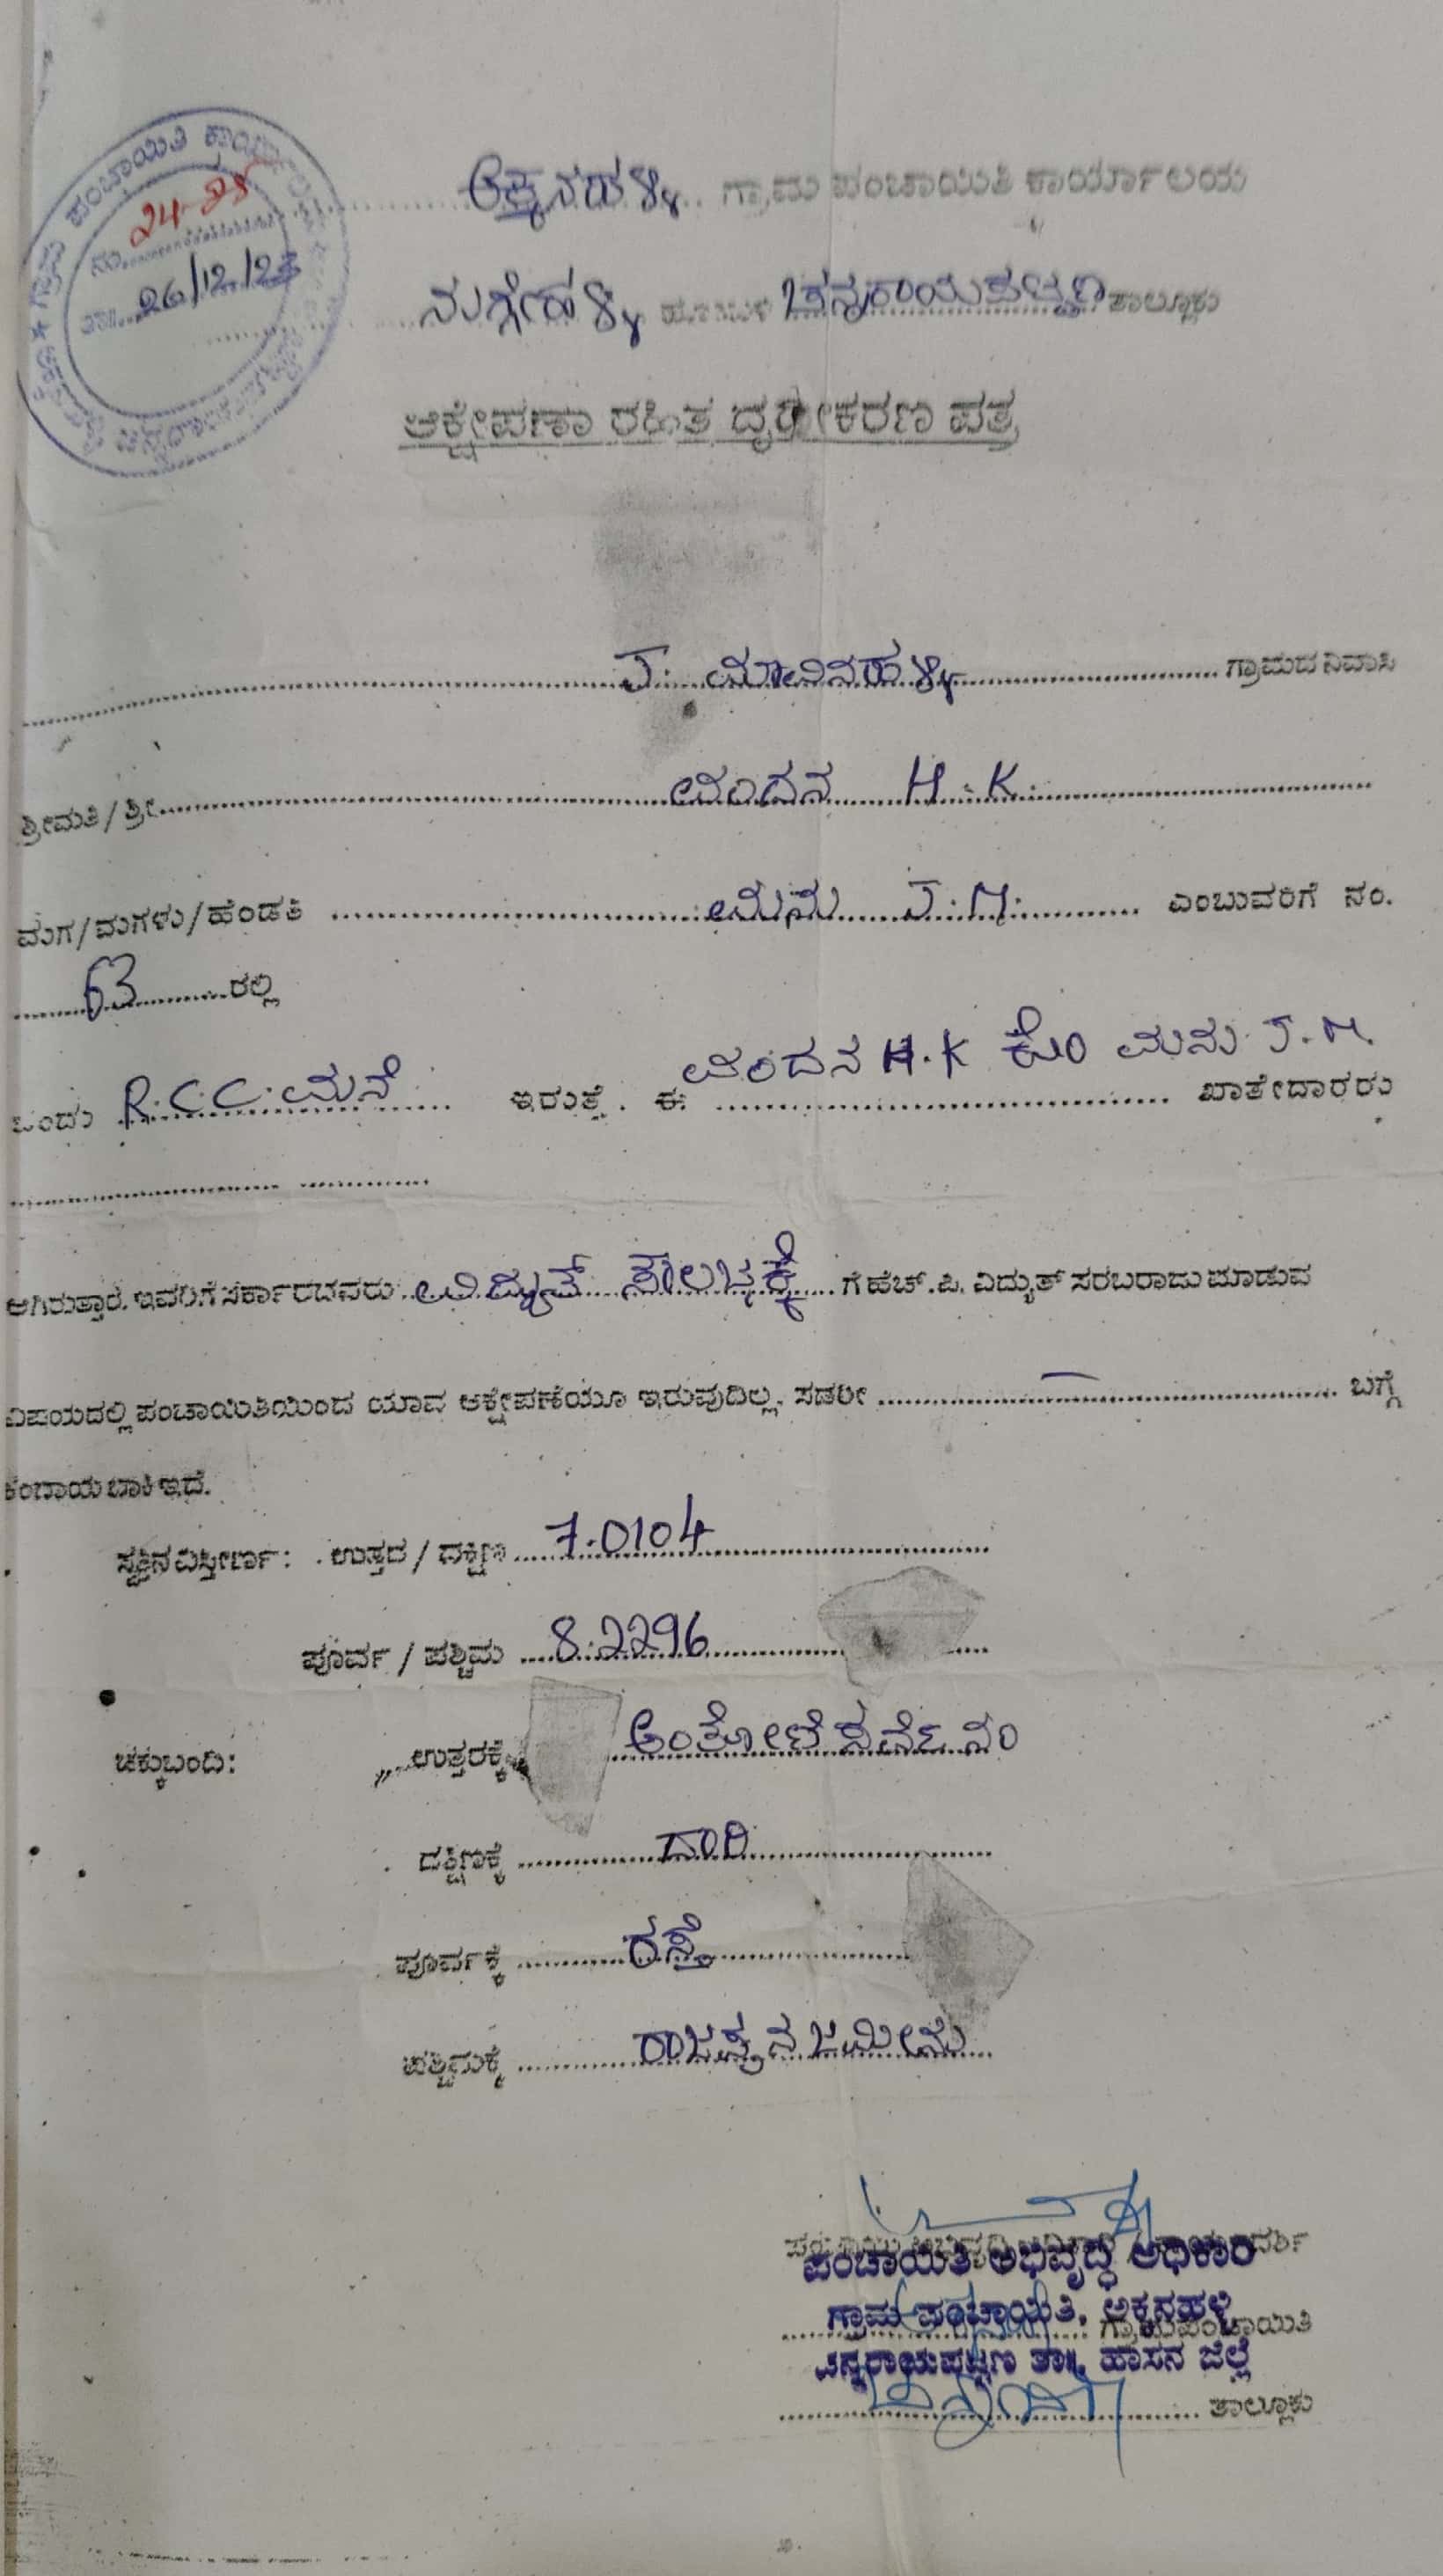 ಗ್ರಾಮ ಪಂಚಾಯಿತಿ ಕಾರ್ಯಾಲಯ
ನಂ. 24-25
26/12/23
ಅಕ್ಕನಹಳ್ಳಿ ಗ್ರಾಮ ಪಂಚಾಯಿತಿ ಕಾರ್ಯಾಲಯ
ನುಗ್ಗೇಹಳ್ಳಿ ಹೋಬಳಿ ಚನ್ನರಾಯಪಟ್ಟಣ ತಾಲ್ಲೂಕು
ಆಕ್ಷೇಪಣಾ ರಹಿತ ದೃಢೀಕರಣ ಪತ್ರ
J. ಮಾವಿನಹಳ್ಳಿ ಗ್ರಾಮದ ನಿವಾಸಿ
ಶ್ರೀಮತಿ/ಶ್ರೀ ವಂದನ H.K.
ಮಗ/ಮಗಳು/ಹೆಂಡತಿ ಮನು J.M. ಎಂಬುವರಿಗೆ ನಂ.
63 ರಲ್ಲಿ
ಒಂದು R.C.C. ಮನೆ ಇರುತ್ತೆ. ಈ ವಂದನ H.K ಕೋಂ ಮನು J.M. ಖಾತೇದಾರರು
ಆಗಿರುತ್ತಾರೆ. ಇವರಿಗೆ ಸರ್ಕಾರದವರು ವಿದ್ಯುತ್ ಸೌಲಭ್ಯಕ್ಕೆ ಗೆ ಹೆಚ್.ಪಿ. ವಿದ್ಯುತ್ ಸರಬರಾಜು ಮಾಡುವ
ವಿಷಯದಲ್ಲಿ ಪಂಚಾಯಿತಿಯಿಂದ ಯಾವ ಆಕ್ಷೇಪಣೆಯೂ ಇರುವುದಿಲ್ಲ. ಸದರೀ — ಬಗ್ಗೆ
ಕಂದಾಯ ಬಾಕಿ ಇದೆ.
ಸ್ವತ್ತಿನ ವಿಸ್ತೀರ್ಣ: ಉತ್ತರ / ದಕ್ಷಿಣ 7.0104
ಪೂರ್ವ / ಪಶ್ಚಿಮ 8.2296
ಚಕ್ಕುಬಂದಿ: ಉತ್ತರಕ್ಕೆ ಅಂತೋಣಿ ಸರ್ವೆ ನಂ
ದಕ್ಷಿಣಕ್ಕೆ ದಾರಿ
ಪೂರ್ವಕ್ಕೆ ರಸ್ತೆ
ಪಶ್ಚಿಮಕ್ಕೆ ರಾಜಪ್ಪನ ಜಮೀನು
ಪಂಚಾಯತಿ ಅಭಿವೃದ್ಧಿ ಅಧಿಕಾರಿ
ಗ್ರಾಮ ಪಂಚಾಯತಿ, ಅಕ್ಕನಹಳ್ಳಿ
ಗ್ರಾಮಪಂಚಾಯಿತಿ
ಚನ್ನರಾಯಪಟ್ಟಣ ತಾ॥, ಹಾಸನ ಜಿಲ್ಲೆ
ತಾಲ್ಲೂಕು